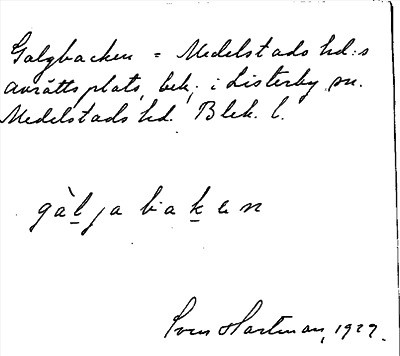 Galgbacken = Medelstads hd:s
avrättsplats, bek. i Listerby sn.
Medelstads hd. Blek. l.
gàlja baken
Sven Hartman, 1927.